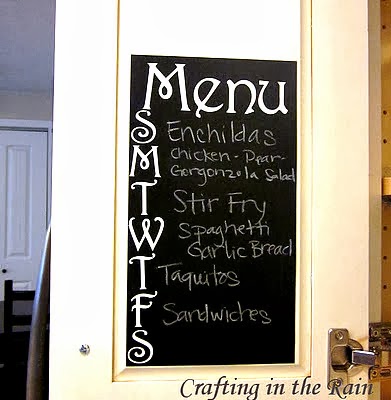 Menu
S Enchildas
M Chicken - Pear -
Gorgonzola Salad
T Stir Fry
W Spaghetti
Garlic Bread
T Taquitos
F Sandwiches
S
Crafting in the Rain